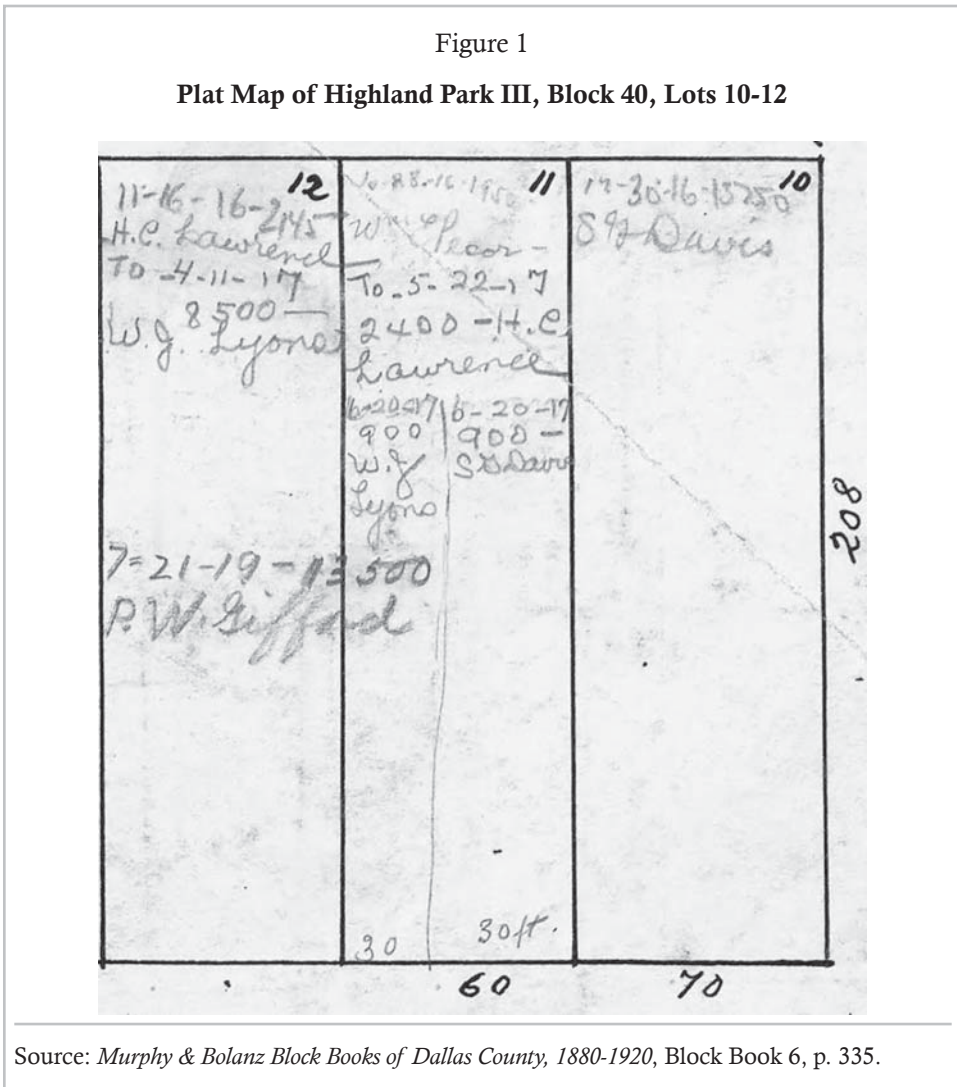 Figure 1
Plat Map of Highland Park III, Block 40, Lots 10-12
12
11-16-16-2145-
H.C. Lawrence
To -4-11-17
8500-
W.J. Lyons
7=21-19-13500
P.W. Gifford
11
1950
To-5-22-17
2400-H.C.
Lawrence
6-20-17
900
W.J
Lyons
6-20-17
900-
S G Davis
30
30ft.
10
30-16-13250
S G Davis
208
60
70
Source: Murphy & Bolanz Block Books of Dallas County, 1880-1920, Block Book 6, p. 335.